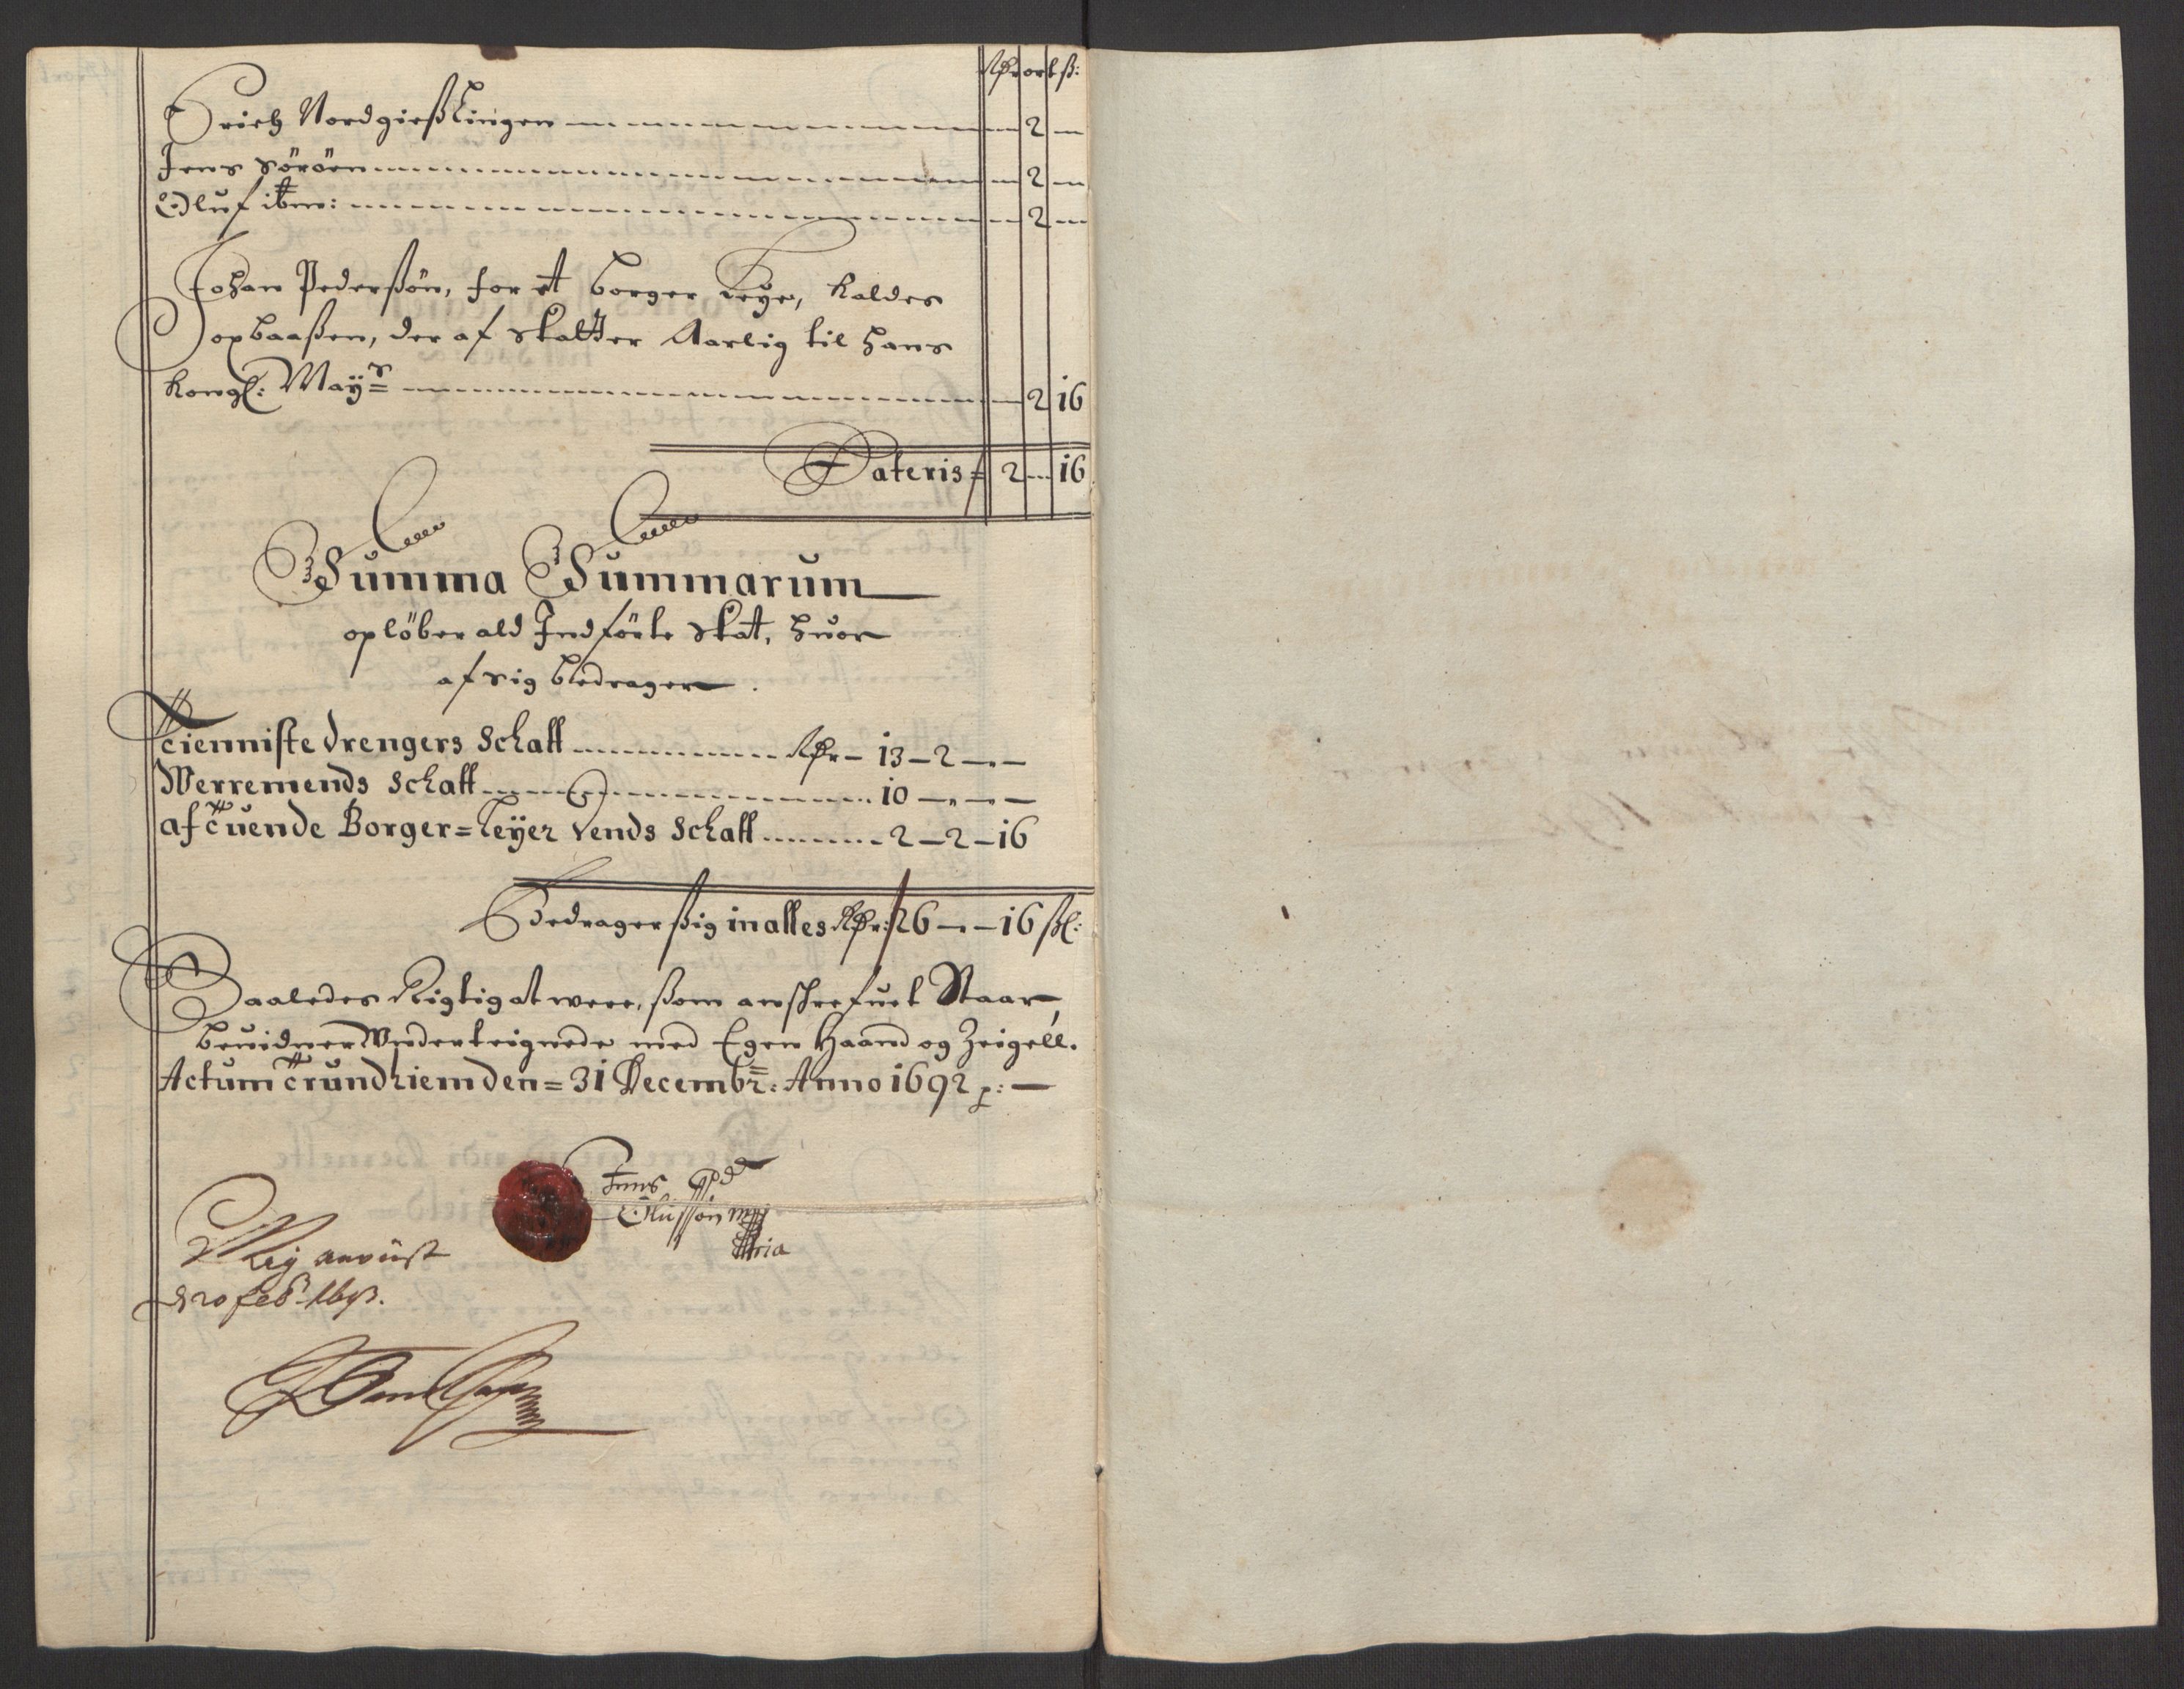 Rdr ort ß:
Erich Nordgießlingen - 2 -
Jens Söröen - 2 -
Oluf ibm: - 2 -
Johan Pederßön, for et borger Leye, kaldes
Jopbaaßen, der af skatter Aarlig til hans
kongl: Mayts - 2 16
Lateris = 2 - 16
Summa Summarum
opløber ald Indförte Skat, huor
af sig bedrager.
Tienniste drengers Schatt Rdr - 13 - 2 - -
Werremends Schatt 10 - - -
af Tuende Borger=Leyer Vends Schatt 2 - 2 - 16
Bedrager ßig in alles Rdr: 26 - - 16 ßl:
Saaledes Rigtig at were, ßom anschrefuet Staar,
beuidner Underteignede med Egen Haand og Zeigell.
Actum Trundhiem den = 31 Decembr: Anno 1692 p: -
Jens Pd
Olufßön mpp
ria
Rey
d 20 feb 1693.